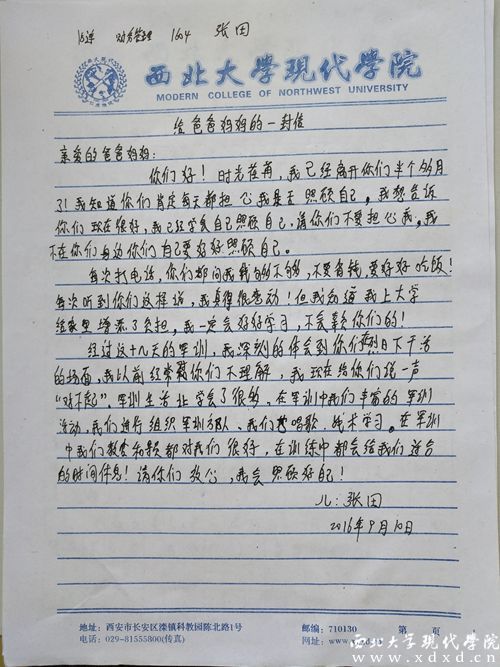 15连 财务管理 1604 张田
西北大學現代學院
MODERN COLLEGE OF NORTHWEST UNIVERSITY
给爸爸妈妈的一封信
亲爱的爸爸妈妈:
你们好!时光荏苒,我已经离开你们半个多月
了!我知道你们肯定每天都担心我是否照顾自己。我想告诉
你们现在很好,我已经学会自己照顾自己,请你们不要担心我。我
不在你们身边你们自己要好好照顾自己。
每次打电话,你们都问我钱的不够,不要省钱,要好好吃饭!
每次听到你们这样说,我真得很感动!但我知道我上大学
给家里增添了负担,我一定会好好学习,不会辜负你们的!
经过这十几天的军训,我深刻的体会到你们烈日下干活
的场面,我以前经常你们不理解,我现在给你们说一声
"对不起"。军训生活让学会了很多,在军训中我们丰富的军训
活动,我们进行组织军训方队、我们唱歌、战术学习。在军训
中我们教官和都对我们很好,在训练中都会给我们适合
的时间休息!请你们放心,我会照顾好自己!
儿:张田
2016年9月10日
地址:西安市长安区滦镇科教园陈北路1号
电话:029-81555800(传真)
邮编:710130
网址:
第 页
西北大学现代学院
www.xdxd.cn